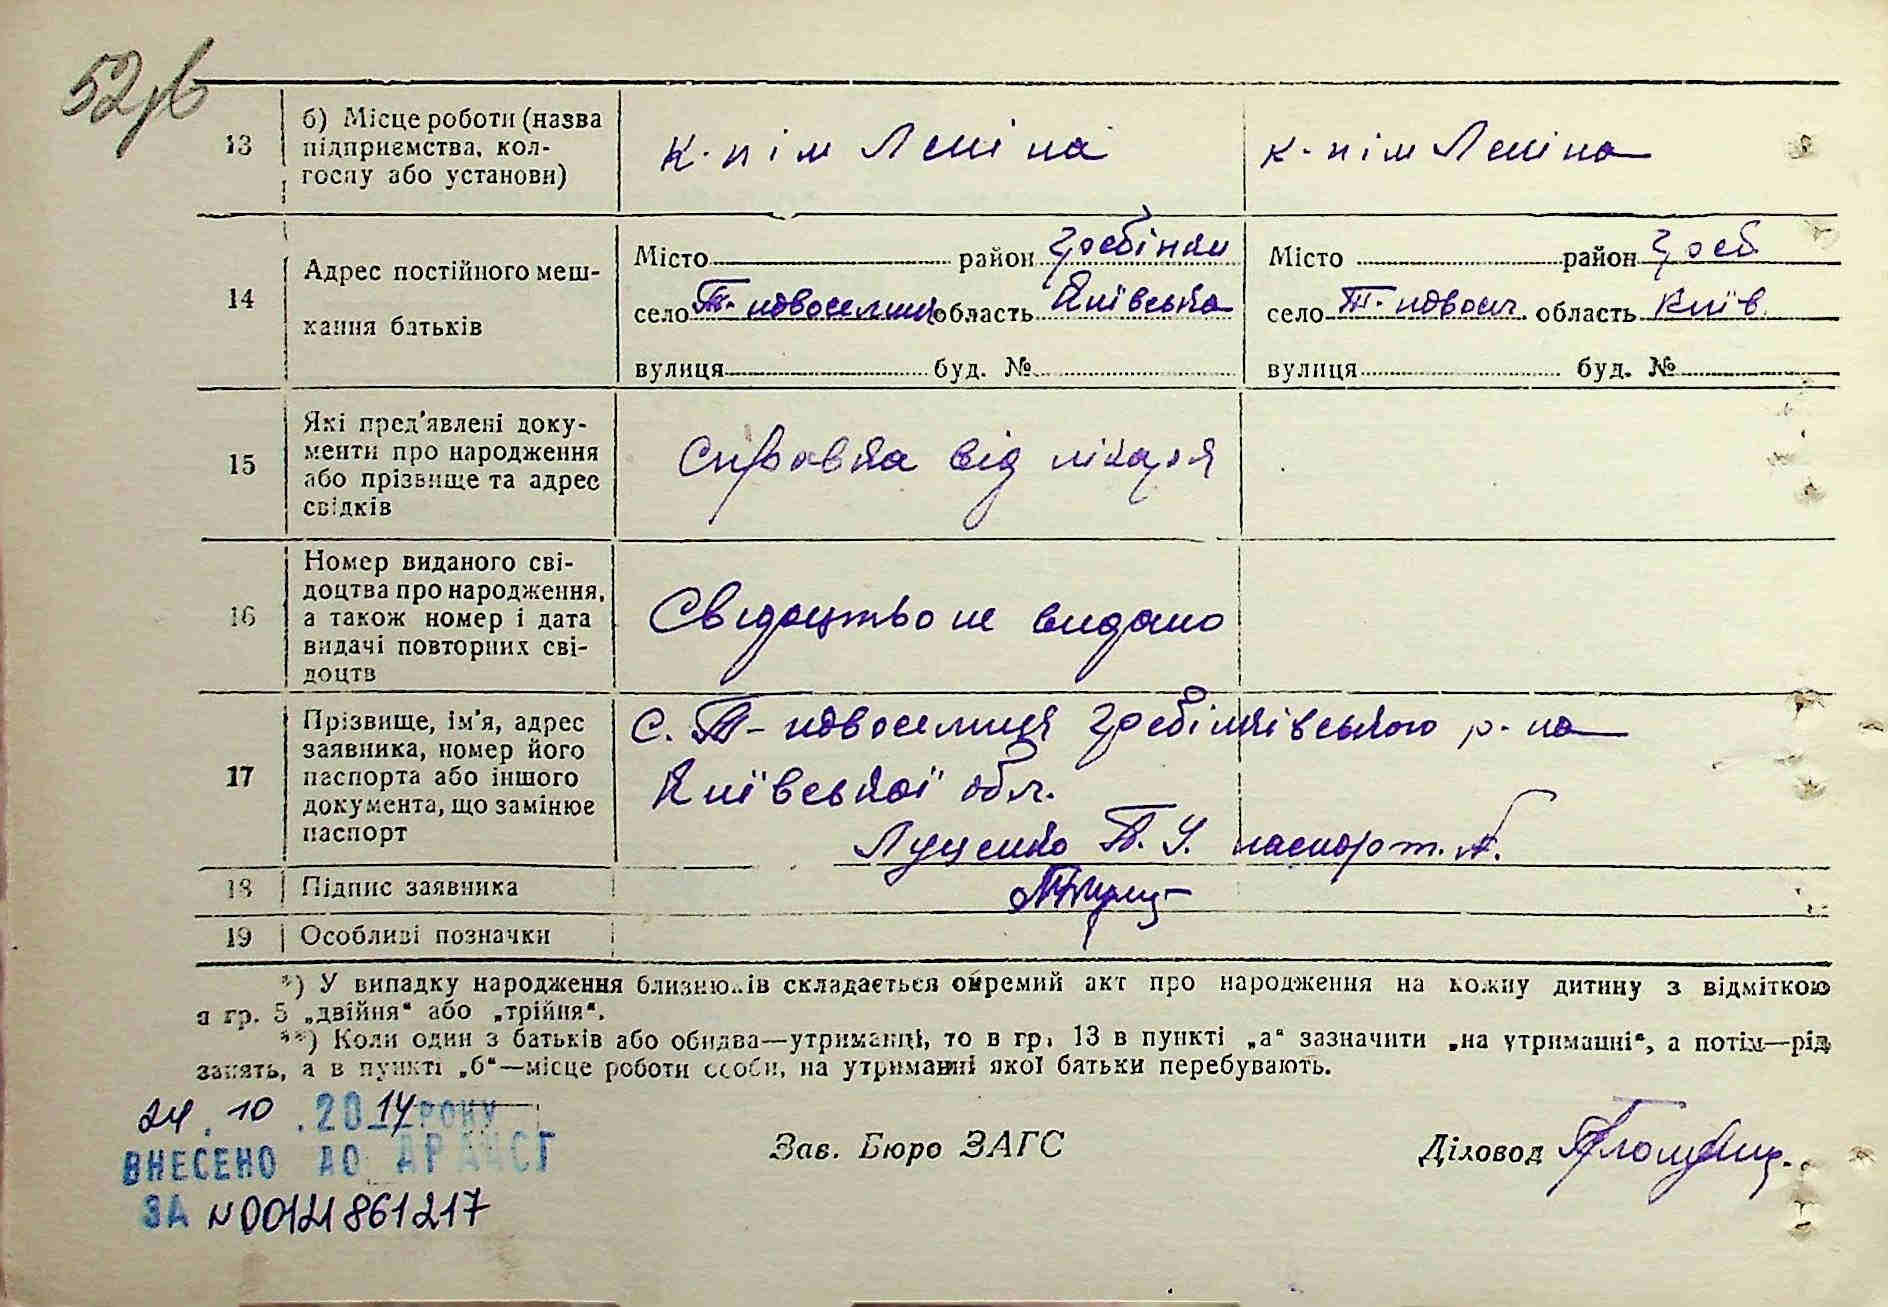 52 зв
13 б) Місце роботи (назва підприємства, колгоспу або установи) к-п ім Леніна к-п ім Леніна
14 Адрес постійного мешкання батьків
Місто район Гребінки Місто район Греб
село Т-Новоселиця область Київська село Т-Новосел. область Київ.
вулиця буд. № вулиця буд. №
15 Які пред'явлені доку-
менти про народження
або прізвище та адрес
свідків
Справка від лікаря
16 Номер виданого сві-
доцтва про народження,
а також номер і дата
видачі повторних сві-
доцтв
Свідоцтво не видано
17 Прізвище, ім'я, адрес
заявника, номер його
паспорта або іншого
документа, що замінює
паспорт
С. Т-Новоселиця Гребінківського р-на
Київської обл.
Луценко Т. У. паспорт. А.
18 Підпис заявника
19 Особливі позначки
*) У випадку народження близнюків складається окремий акт про народження на кожну дитину з відміткою
в гр. 5 „двійня“ або „трійня“.
**) Коли один з батьків або обидва—утриманці, то в гр. 13 в пункті „а“ зазначити „на утриманні“, а потім—рід
занять, а в пункті „б“—місце роботи особи, на утриманні якої батьки перебувають.
24. 10 .2014 РОКУ
ВНЕСЕНО ДО ДРАЦСГ
ЗА N00121861217
Зав. Бюро ЗАГС
Діловод